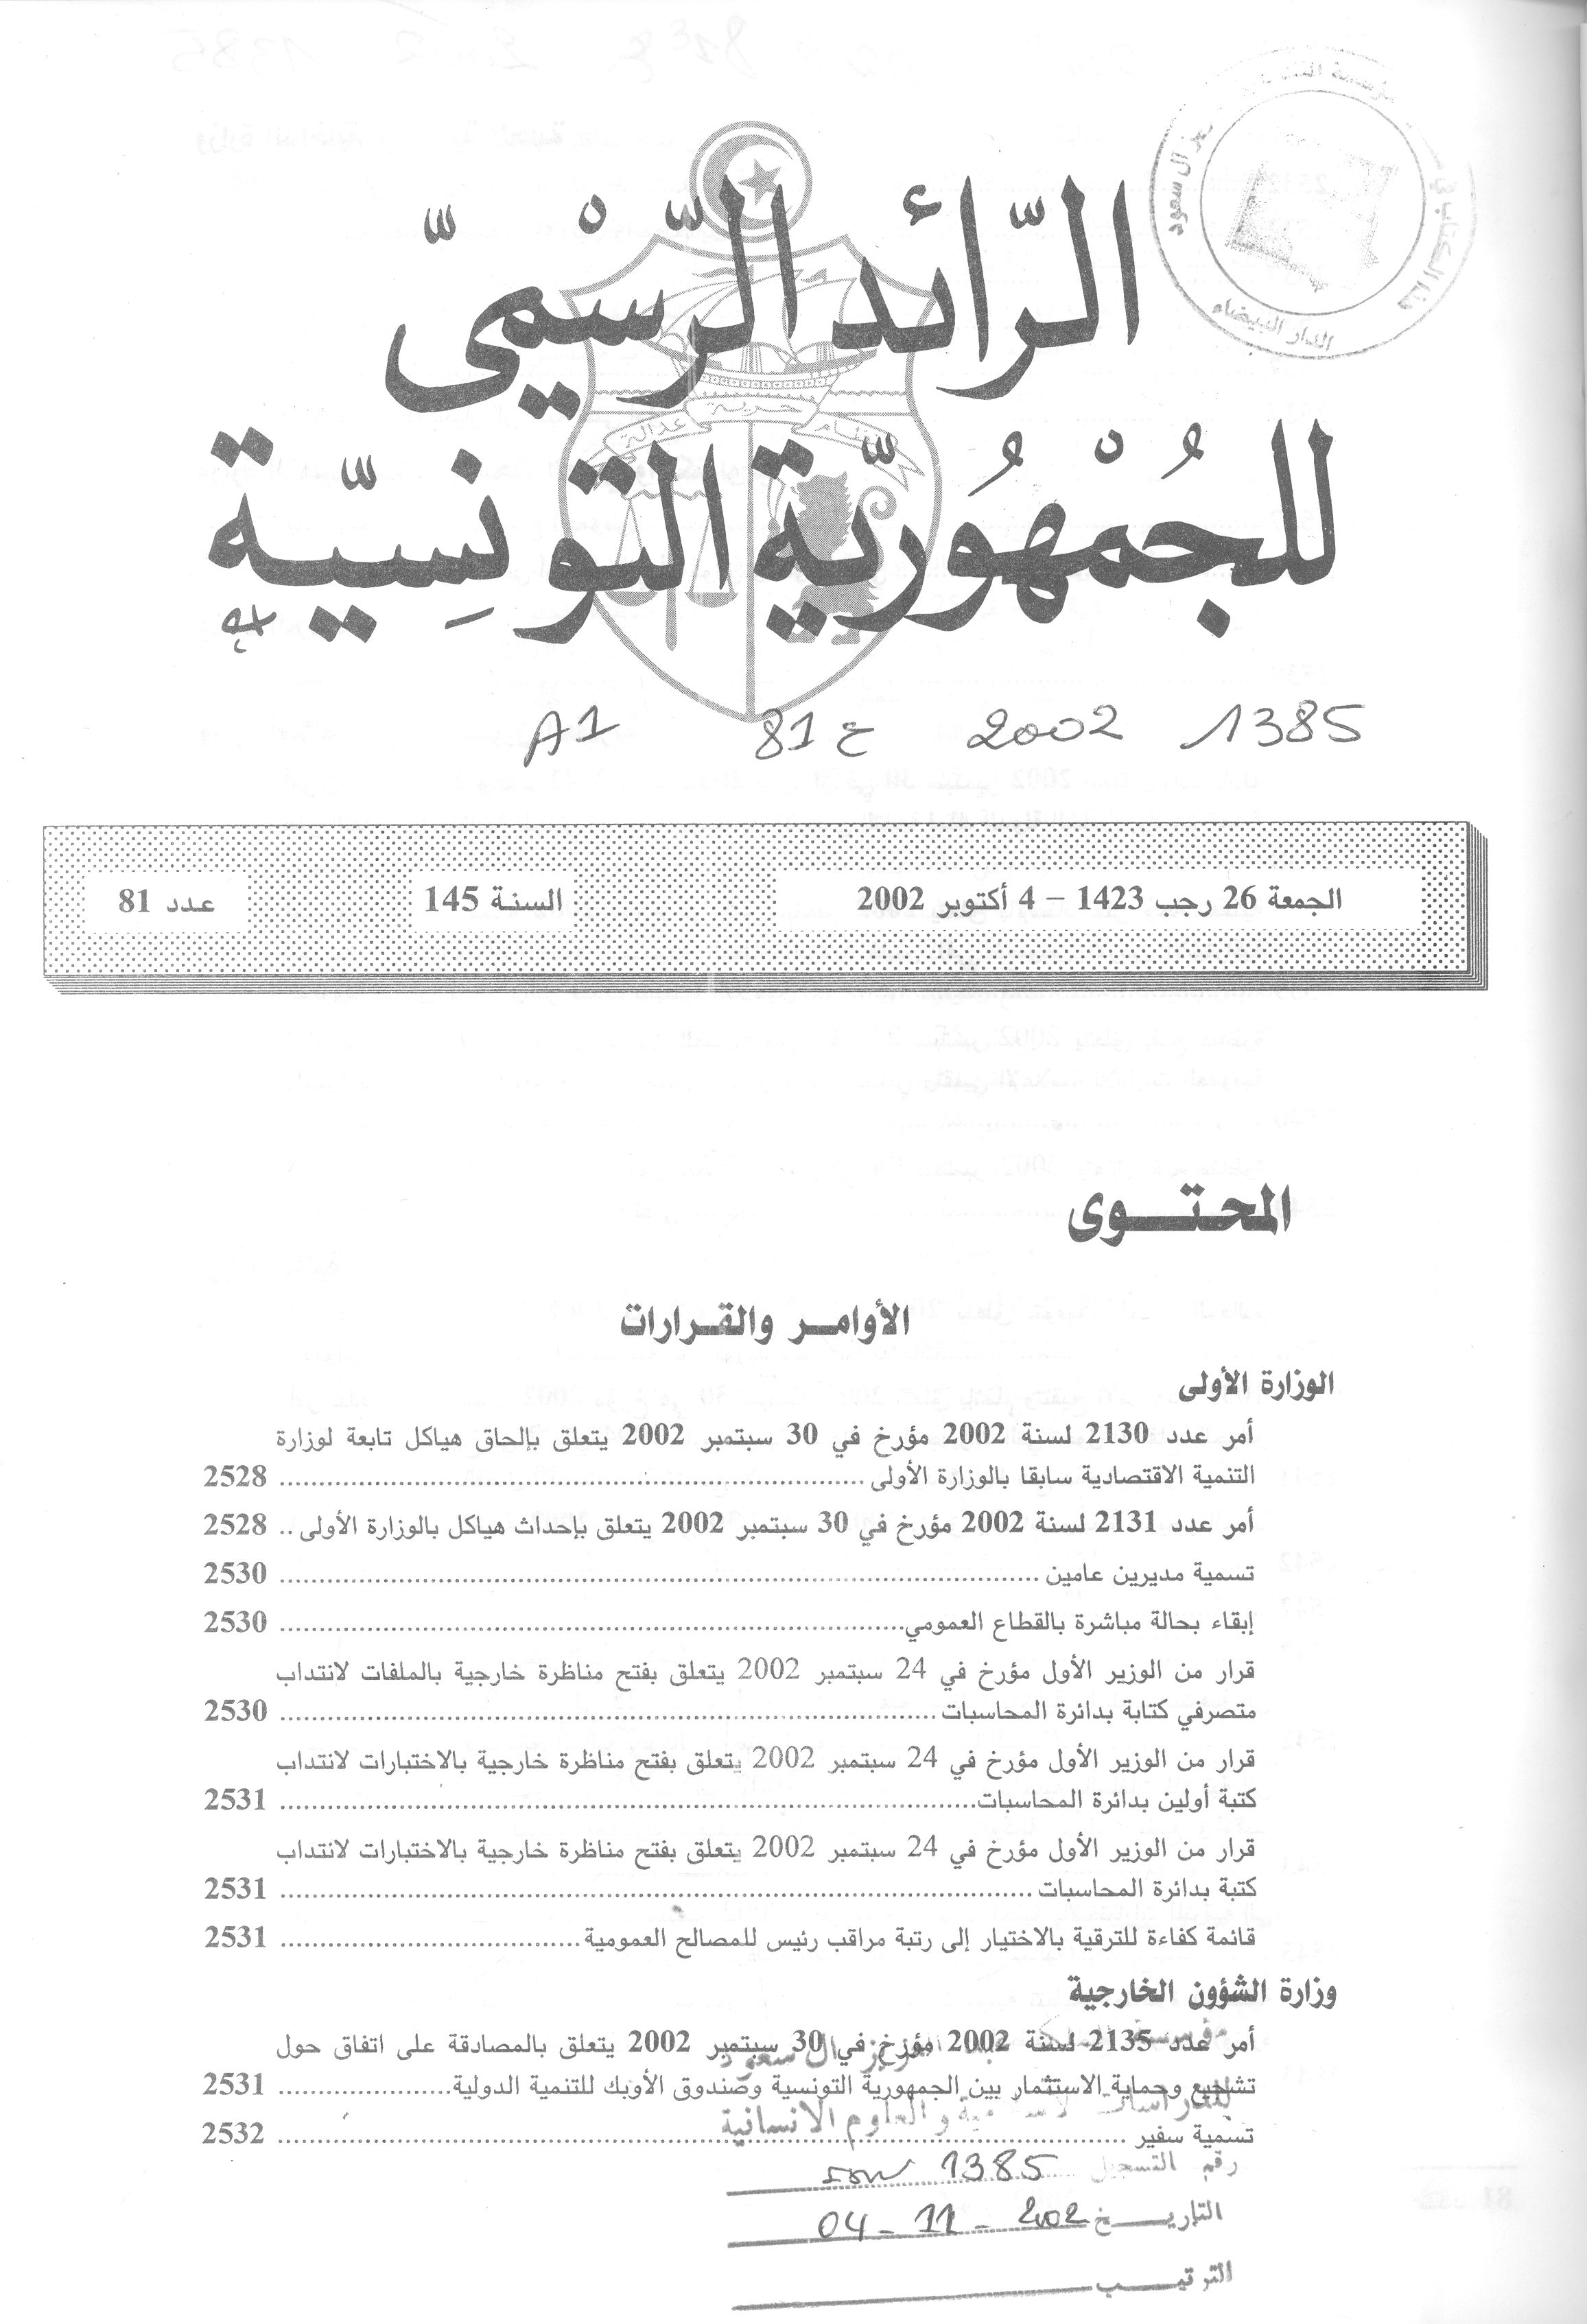 الرّائد الرّسْميّ
للجُمْهُوريّة التّونِسيّة
نظام حرية عدالة
الدار البيضاء
A1 81 ع 2002 1385
الجمعة 26 رجب 1423 – 4 أكتوبر 2002 السنة 145 عدد 81
المحتوى
الأوامر والقرارات
الوزارة الأولى
أمر عدد 2130 لسنة 2002 مؤرخ في 30 سبتمبر 2002 يتعلق بإلحاق هياكل تابعة لوزارة
التنمية الاقتصادية سابقا بالوزارة الأولى ........ 2528
أمر عدد 2131 لسنة 2002 مؤرخ في 30 سبتمبر 2002 يتعلق بإحداث هياكل بالوزارة الأولى .. 2528
تسمية مديرين عامين ........ 2530
إبقاء بحالة مباشرة بالقطاع العمومي ........ 2530
قرار من الوزير الأول مؤرخ في 24 سبتمبر 2002 يتعلق بفتح مناظرة خارجية بالملفات لانتداب
متصرفي كتابة بدائرة المحاسبات ........ 2530
قرار من الوزير الأول مؤرخ في 24 سبتمبر 2002 يتعلق بفتح مناظرة خارجية بالاختبارات لانتداب
كتبة أولين بدائرة المحاسبات ........ 2531
قرار من الوزير الأول مؤرخ في 24 سبتمبر 2002 يتعلق بفتح مناظرة خارجية بالاختبارات لانتداب
كتبة بدائرة المحاسبات ........ 2531
قائمة كفاءة للترقية بالاختيار إلى رتبة مراقب رئيس للمصالح العمومية ........ 2531
وزارة الشؤون الخارجية
أمر عدد 2135 لسنة 2002 مؤرخ في 30 سبتمبر 2002 يتعلق بالمصادقة على اتفاق حول
تشجيع وحماية الاستثمار بين الجمهورية التونسية وصندوق الأوبك للتنمية الدولية ........ 2531
تسمية سفير ........ 2532
آل سعود
للدراسات الاسلامية والعلوم الانسانية
رقم التسجيل 1385
التاريخ 04 - 11 - 2002
الترتيب